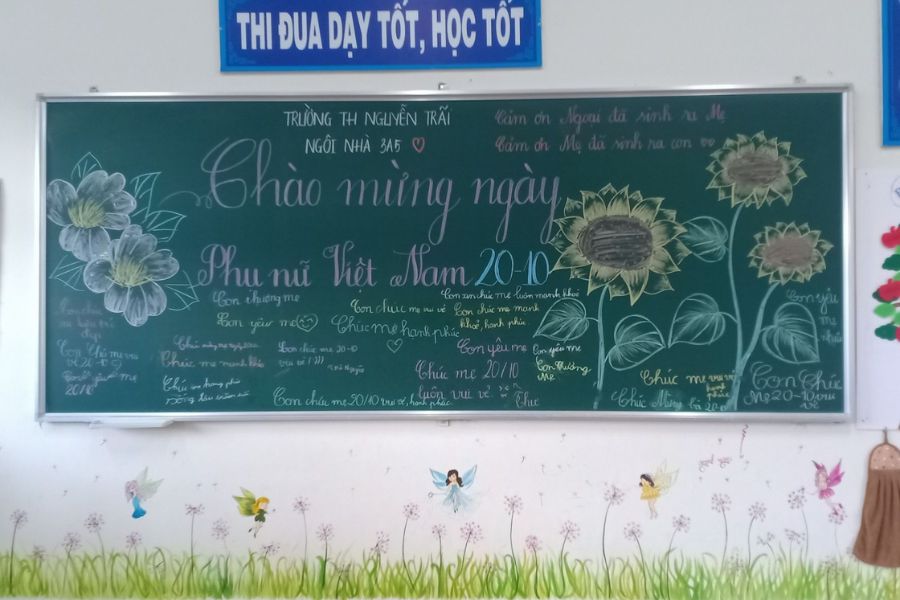 THI ĐUA DẠY TỐT, HỌC TỐT
TRƯỜNG TH NGUYỄN TRÃI
NGÔI NHÀ 3A5
Cảm ơn Ngoại đã sinh ra Mẹ
Cảm ơn Mẹ đã sinh ra con
Chào mừng ngày
Phụ nữ Việt Nam 20-10
Con thương mẹ
Con yêu mẹ
Con chúc mẹ vui vẻ
Chúc mẹ hạnh phúc
Con xin chúc mẹ luôn mạnh khoẻ
Con chúc mẹ mạnh
khoẻ, hạnh phúc
Con yêu
mẹ
Chúc mẹ mạnh khoẻ
Con chúc mẹ 20-10
vui vẻ !
Con yêu mẹ
Con yêu mẹ
Con thương
mẹ
Chúc mẹ 20/10
luôn vui vẻ
Thư
20/10
Con chúc mẹ 20/10 vui vẻ, hạnh phúc
Chúc mẹ vui vẻ
hạnh
phúc
Chúc Mừng
Con Chúc
Mẹ 20-10 vui
vẻ